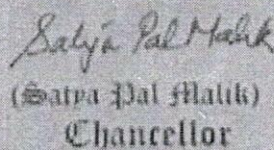 Satya Pal Malik
(Satya Pal Malik)
Chancellor